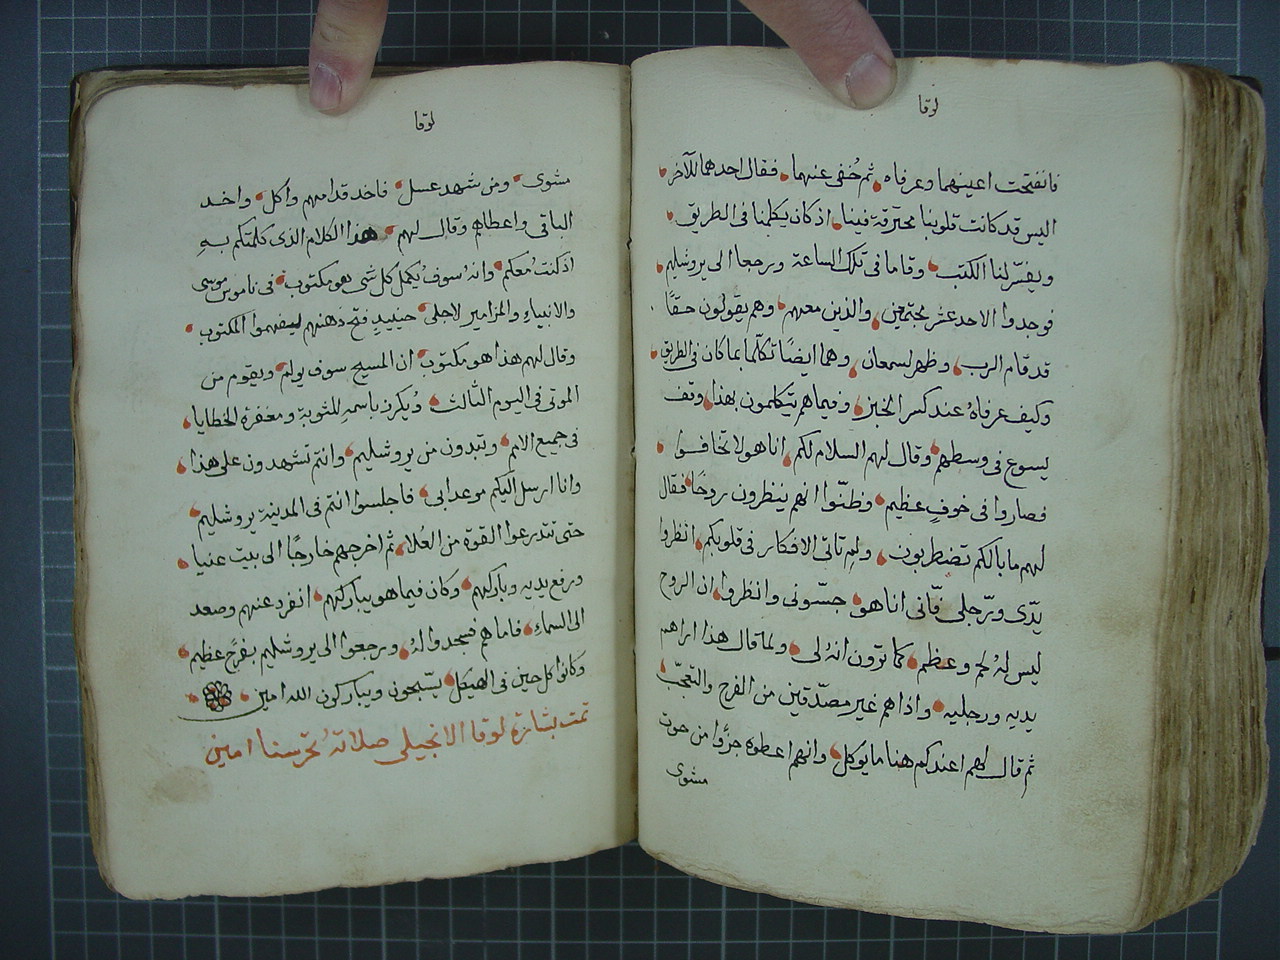 لوقا
فانفتحت اعينهما وعرفاه ثم خُفى عنهما فقال احدهما للآخر
اليس قد كانت قلوبنا محترقة فينا اذ كان يكلمنا فى الطريق
ويفسّر لنا الكتب وقاما فى تلك الساعة ورجعا الى يروشليم
فوجدوا الاحد عشر مجتمعين والذين معهم وهم يقولون حقًا
قد قام الرب وظهر لسمعان وهما ايضًا تكلّما بما كان فى الطريق
وكيف عرفاهُ عند كسر الخبز وفيما هم يتكلمون بهذا وقف
يسوع فى وسطهم وقال لهم السلام لكم انا هو لا تخافوا
فصاروا فى خوفٍ عظيم وظنّوا انهم ينظرون روحًا فقال
لهم ما بالكم تضطربون ولِم تاتى الافكار فى قلوبكم انظروا
يدّى ورّجلى فّانى انا هو جسّونى وانظروا ان الروح
ليس لهُ لحم وعظم كما ترون انهُ لى ولما قال هذا اراهم
يديه ورجليه واذا هم غير مصدّقين من الفرح والتعجّب
ثم قال لهم اعندكم هنا ما يوكل وانهم اعطوه جزُوا من حوت
مشوى
لوقا
مشوى ومن شهد عسل فاخد قدامهم واكل واخد
الباقى واعطاهم وقال لهم هذا الكلام الذى كلمتكم بهِ
اذ كنتُ معكم وانهُ سوف يُكمل كل شى هو مكتوب فى ناموس موسى
والانبياءِ والمزامير لاجلى حينيدٍ فتح ذهنهم ليفهموا المكتوب
وقال لهم هذا هو مكتوب ان المسيح سوف يولم ويقوم من
الموتى فى اليوم الثالث ويُكرز باسمهِ للتوبة ومغفرة الخطايا
فى جميع الامم وتبدون من يروشليم وانتم تشهدون على هذا
وانا ارسل اليكم موعد ابى فاجلسوا انتم فى المدينة يروشليم
حتى تتدرعوا القوة من العُلا ثم اخرجهم خارجًا الى بيت عنيا
ورفع يديه وباركهم وكان فيما هو يباركهم انفرد عنهم وصعد
الى السماءِ فاما هم فسجدوا لهُ ورجعوا الى يروشليم بفرحٍ عظيم
وكانوا كل حين فى الهيكل يسّبحون ويباركون الله امين
تمت بشارة لوقا الانجيلى صلاتهُ تحرسنا امين